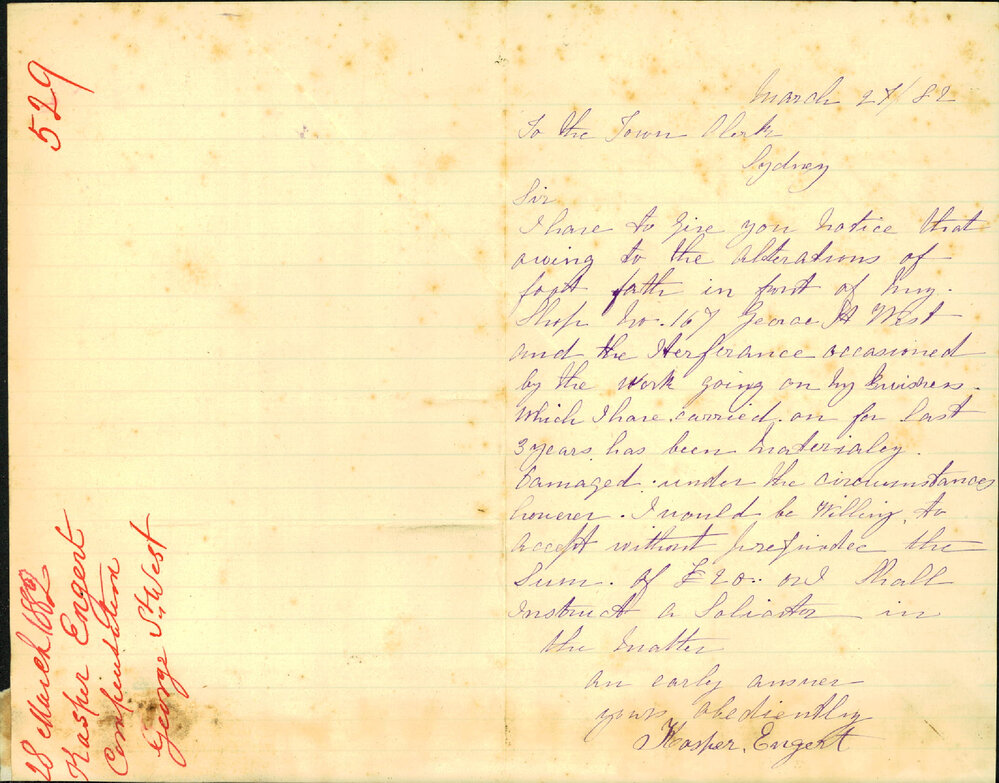 529
28 March 1882
Kasper Engert
Compensation
George St. West
March 27/82
To the Town Clerk
Sydney
Sir
I have to give you notice that
owing to the alterations of
foot path in front of my.
Shop No. 167 George St West
and the Iterferance occasioned
by the work going on my buisness.
which I have carried on for last
3 years. has been materialey.
Damaged. under the circumstances
however. I would be Willing to
accept without prejudec the
Sum. of £20.. or I Shall
instruct a Solicitor in
the matter
an early answer
yours obediently
Kasper. Engert